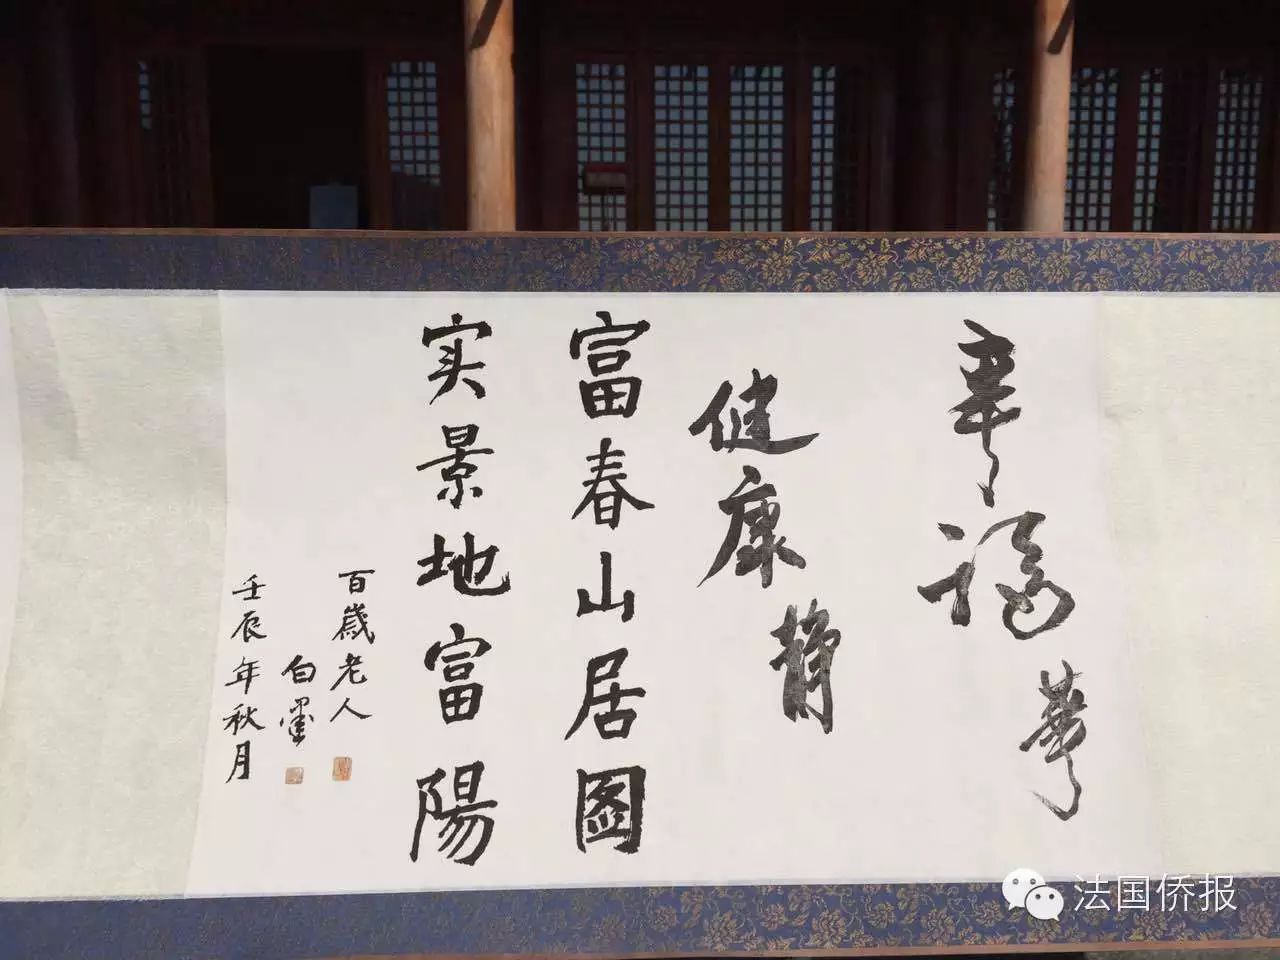 幸福
華
健康
静
富春山居图
实景地富陽
百歲老人
白墨
壬辰年秋月
法国侨报